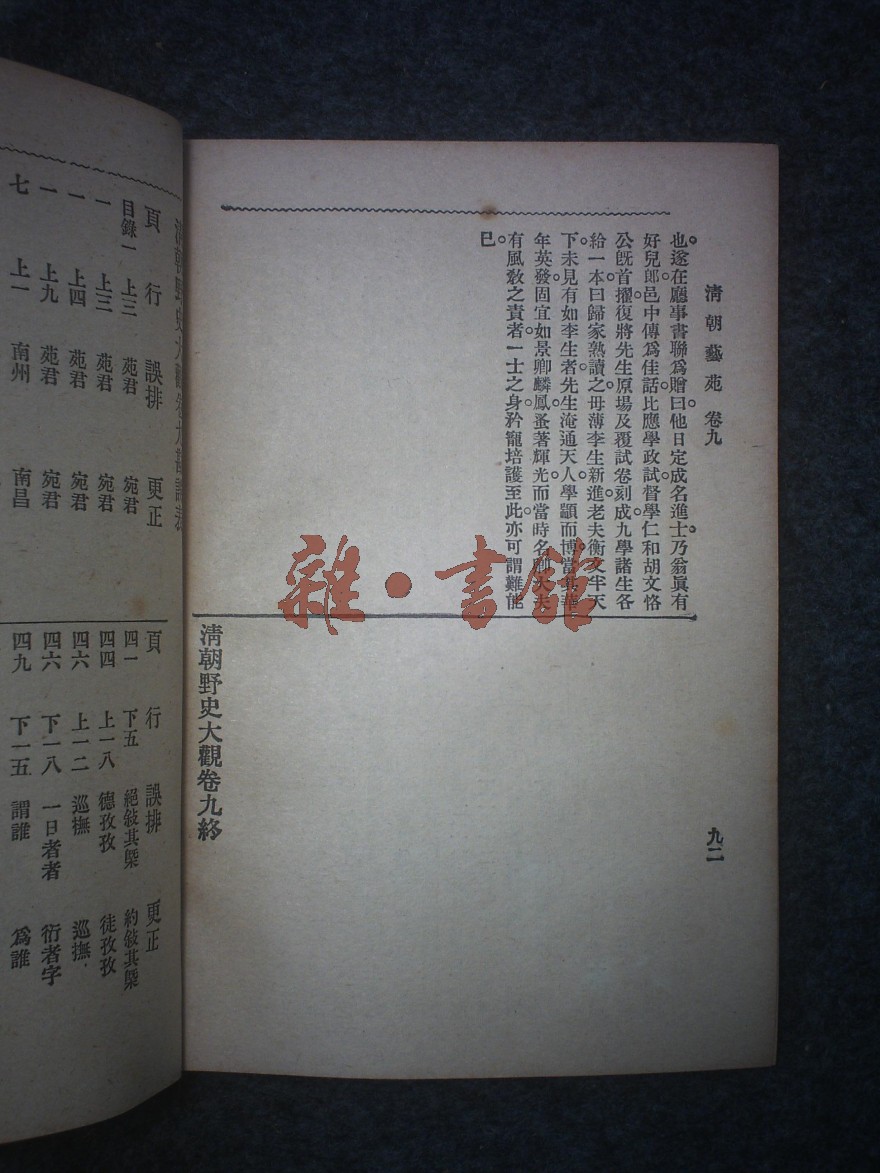 清朝藝苑 卷九
九二
也。遂在廳事書聯為贈。曰他日定成名進士。乃翁眞有
好兒郎。邑中傳為佳話。比應學政試。督學仁和胡文恪
公旣首擢。復將先生原場及覆試卷刻成。九學諸生各
給一本。曰歸家熟讀之。毋薄李生新進。老夫衡文半天
下。未見有如李生者。先生淹通天人。學顓而博。當其華
年英發。固宜如景卿麟鳳。蚤著輝光。而當時名
有風敎之責者。一士之身。矜寵培護至此。亦可謂難能
巳。
清朝野史大觀卷九終
清朝野史大觀卷九勘誤表
頁 行 誤排 更正
目錄一 上三 苑君 宛君
一 上三 苑君 宛君
一 上四 苑君 宛君
一 上九 苑君 宛君
七 上一 南州 南昌
頁 行 誤排 更正
四一 下五 絕敍其槩 約敍其槩
四四 上一八 德孜孜 徒孜孜
四六 上一二 巡撫 巡撫
四六 下一八 一日者者 衍者字
四九 下一五 謂誰 為誰
雜·書館